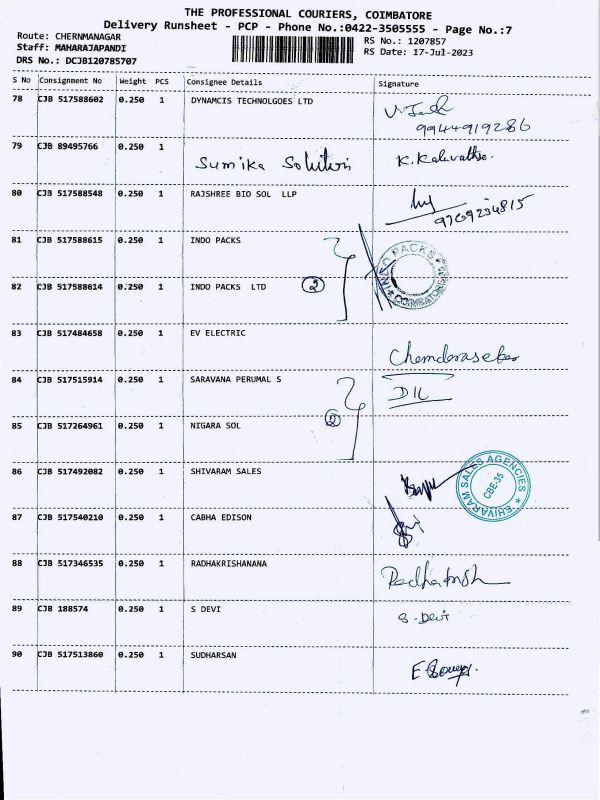 THE PROFESSIONAL COURIERS, COIMBATORE
Delivery Runsheet - PCP - Phone No.:0422-3505555 - Page No.:7
Route: CHERNMANAGAR
Staff: MAHARAJAPANDI
DRS No.: DCJB120785707
RS No.: 1207857
RS Date: 17-Jul-2023
S No Consignment No Weight PCS Consignee Details Signature
78 CJB 517588602 0.250 1 DYNAMCIS TECHNOLGOES LTD
9944919286
79 CJB 89495766 0.250 1 Sumika Solution K. Kalavathe.
80 CJB 517588548 0.250 1 RAJSHREE BIO SOL LLP
9769254815
81 CJB 517588615 0.250 1 INDO PACKS
INDO PACKS * COIMBATORE *
82 CJB 517588614 0.250 1 INDO PACKS LTD 2
83 CJB 517484658 0.250 1 EV ELECTRIC
Chandrasekar
84 CJB 517515914 0.250 1 SARAVANA PERUMAL S
2
85 CJB 517264961 0.250 1 NIGARA SOL
86 CJB 517492082 0.250 1 SHIVARAM SALES
SHIVARAM SALES AGENCIES *
CBE-35
87 CJB 517540210 0.250 1 CABHA EDISON
88 CJB 517346535 0.250 1 RADHAKRISHANANA
89 CJB 188574 0.250 1 S DEVI S. Devi
90 CJB 517513860 0.250 1 SUDHARSAN